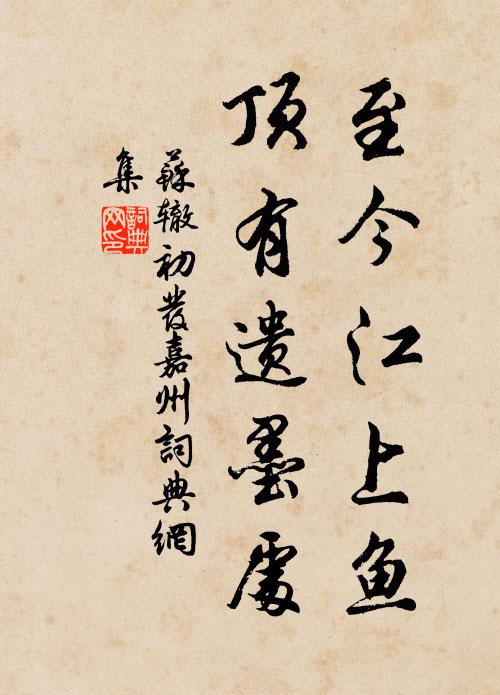 至今江上鱼
顶有遗墨處
蘇辙初發嘉州詞典網
集
詞典网印